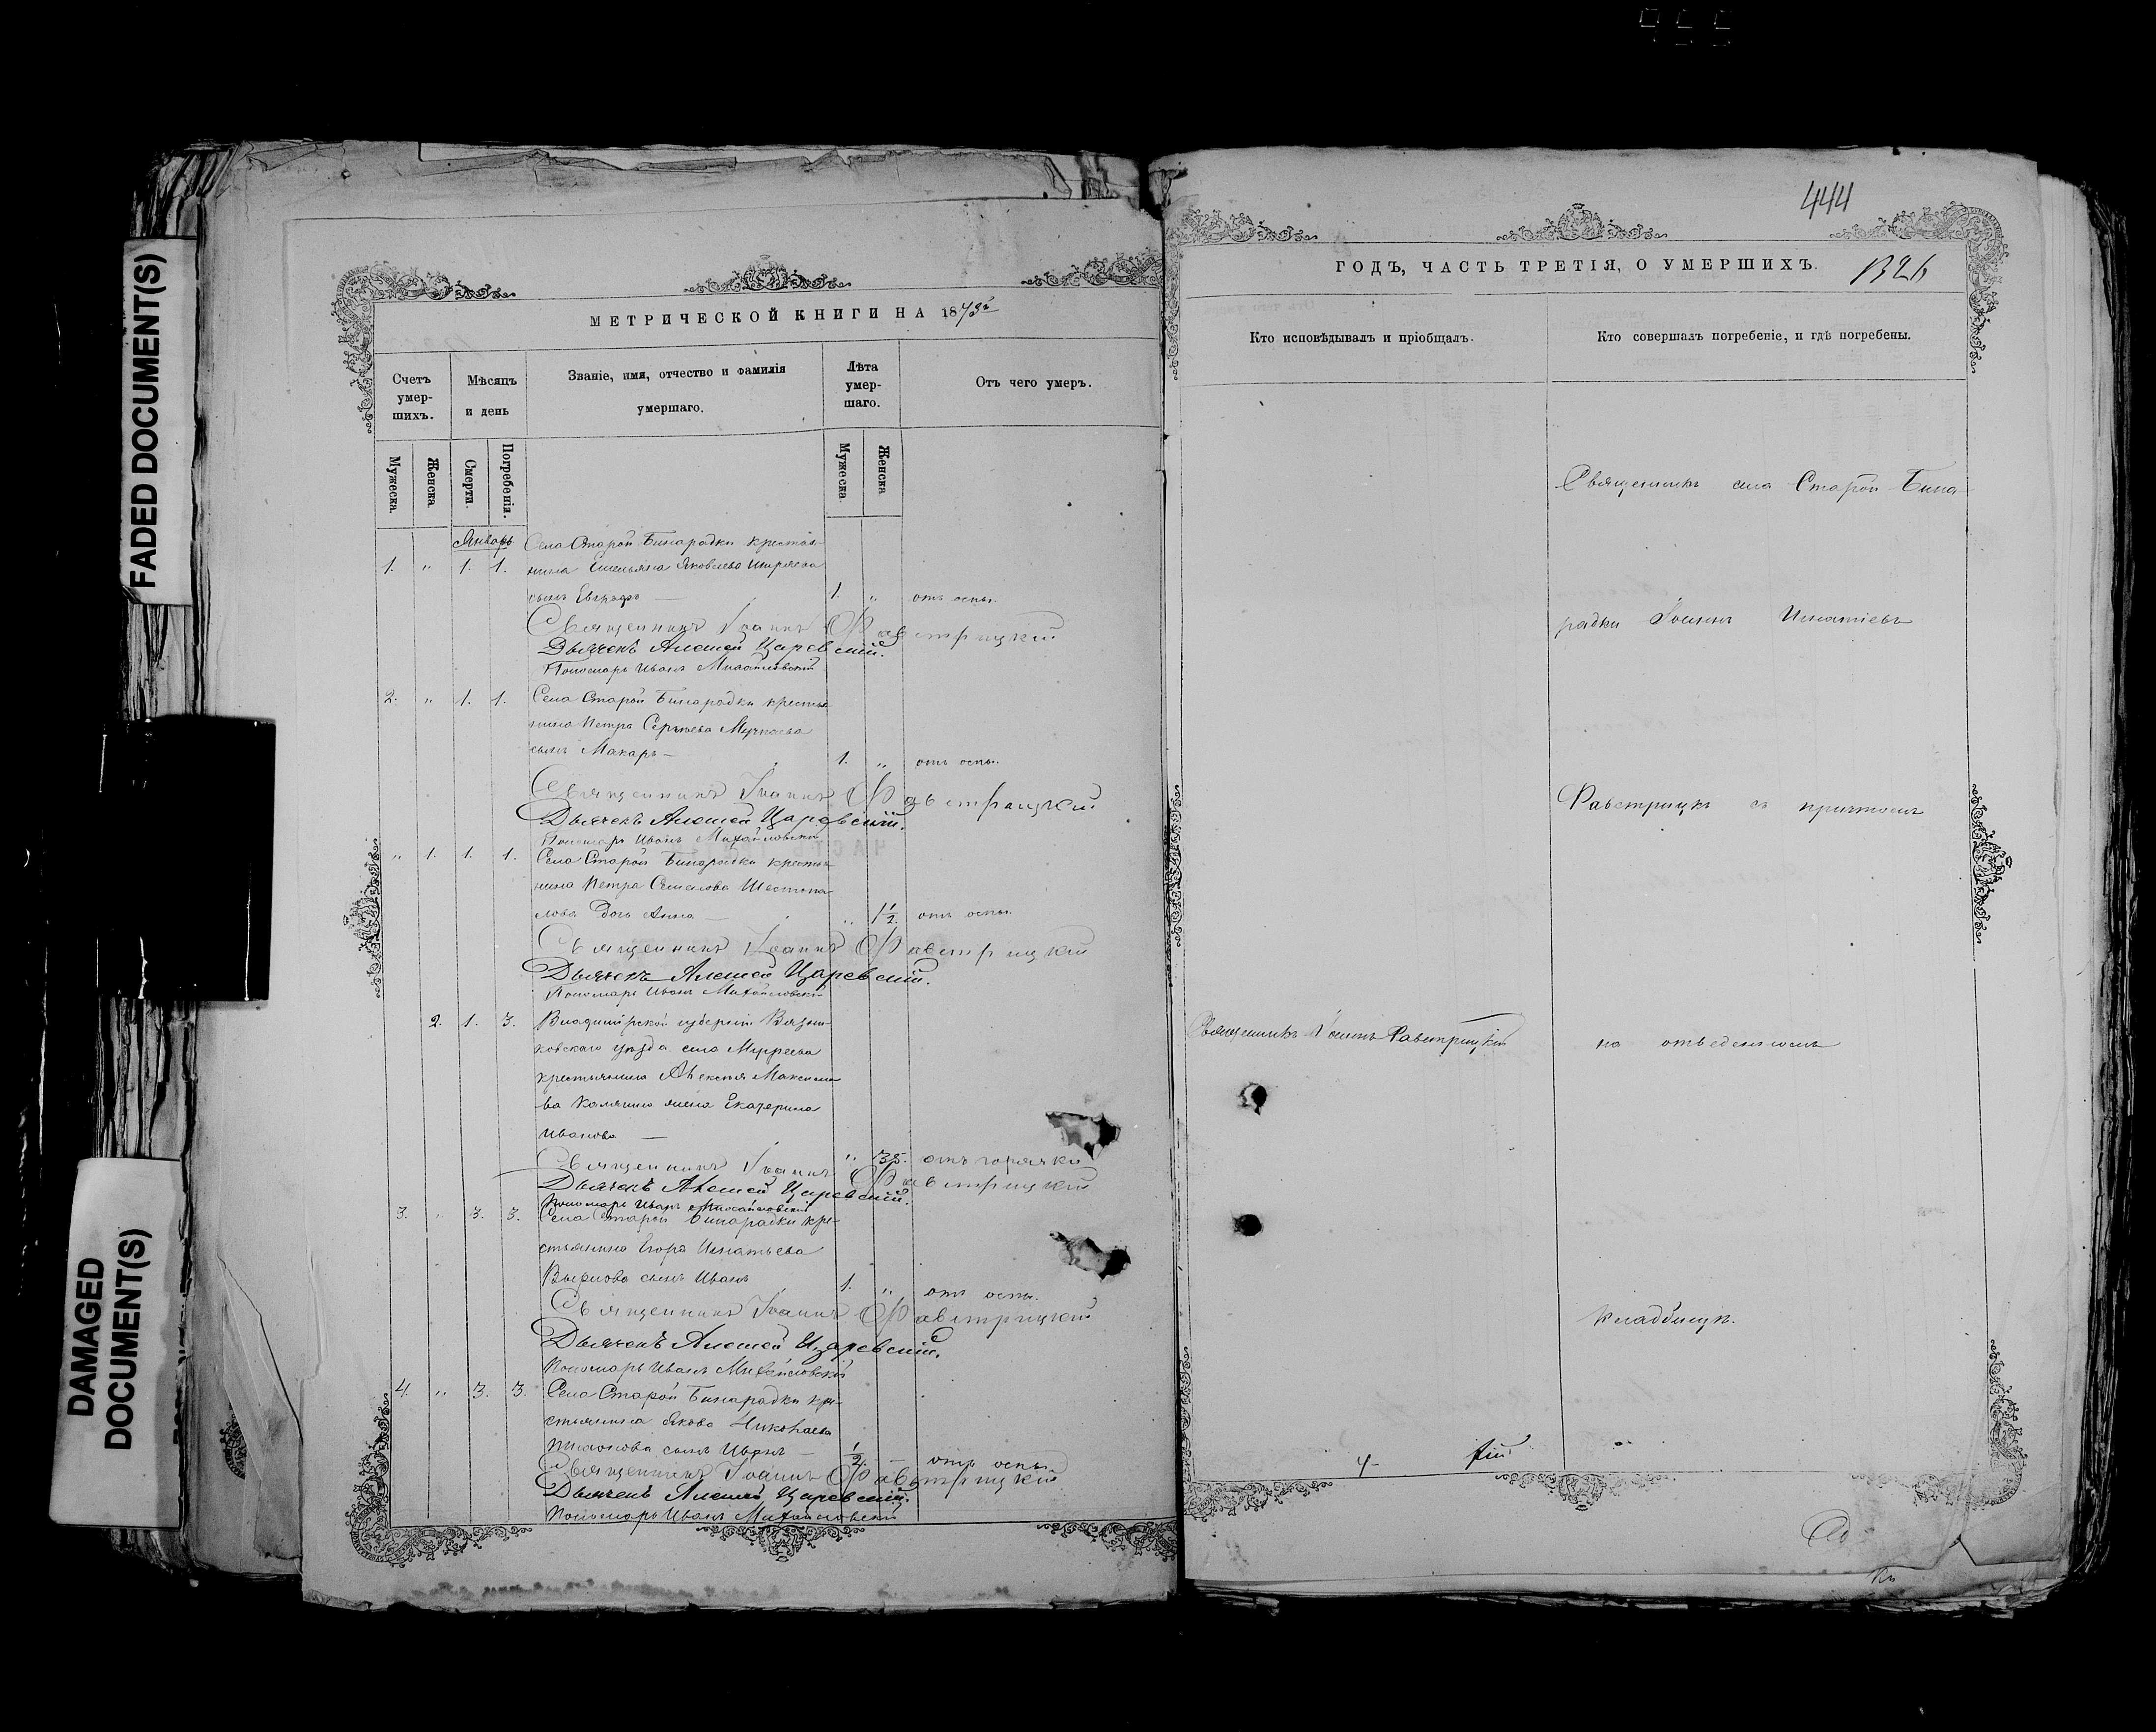 FADED DOCUMENT(S)
DAMAGED
DOCUMENT(S)
МЕТРИЧЕСКОЙ КНИГИ НА 1873й
Счетъ умер-шихъ.
Мѣсяцъ и день
Званіе, имя, отчество и фамилія умершаго.
Лѣта умер-шаго.
Отъ чего умеръ.
Мужеска.
Женска.
Смерти.
Погребенія.
Мужеска.
Женска
Январь Села Старой Бинарадки крестья-
1. „ 1. 1. нина Емельяна Яковлева Ширяева
сынъ Евграфъ — 1. „ отъ оспы.
Священникъ Іоаннъ Фавстрицкій
Дьячекъ Алексей Царевскій.
Пономарь Иванъ Михайловскій
2. „ 1. 1. Села Старой Бинарадки крестья
нина Петра Сергѣева
сынъ Макаръ — 1. „ отъ оспы.
Священникъ Іоаннъ Фавстрицкій
Дьячекъ Алексей Царевскій.
Пономарь Иванъ Михайловскій
„ 1. 1. 1. Села Старой Бинарадки крестья
нина Петра Семенова Шестопа
лова дочь Анна — „ 1 1/2. отъ оспы.
Священникъ Іоаннъ Фавстрицкій
Дьячекъ Алексей Царевскій.
Пономарь Иванъ Михайловскій
2. 1. 3. Владимірской губерніи Вязни-
ковскаго уѣзда села
крестьянина Алексѣя Максимо
ва жена Екатерина
Иванова —
„ 35. отъ горячки
Священникъ Іоаннъ Фавстрицкій
Дьячекъ Алексей Царевскій.
Пономарь Иванъ Михайловскій
3. „ 3. 3. Села Старой Бинарадки кре-
стьянина Егора Игнатьева
сынъ Иванъ 1. „ отъ оспы.
Священникъ Іоаннъ Фавстрицкій
Дьячекъ Алексей Царевскій.
Пономарь Иванъ Михайловскій
4. „ 3. 3. Села Старой Бинарадки кре-
стьянина Якова Николаева
сынъ Иванъ — 1/2. отъ оспы.
Священникъ Іоаннъ Фавстрицкій
Дьячекъ Алексей Царевскій.
Пономарь Иванъ Михайловскій
444
ГОДЪ, ЧАСТЬ ТРЕТІЯ, О УМЕРШИХЪ.
Кто исповѣдывалъ и пріобщалъ.
Кто совершалъ погребеніе, и гдѣ погребены.
Священникъ села Старой Бина-
радки Іоаннъ Игнатіевъ
Фавстрицкъ съ причтомъ
Священникъ Іоаннъ Фавстрицкій
на отведенномъ
кладбищѣ.